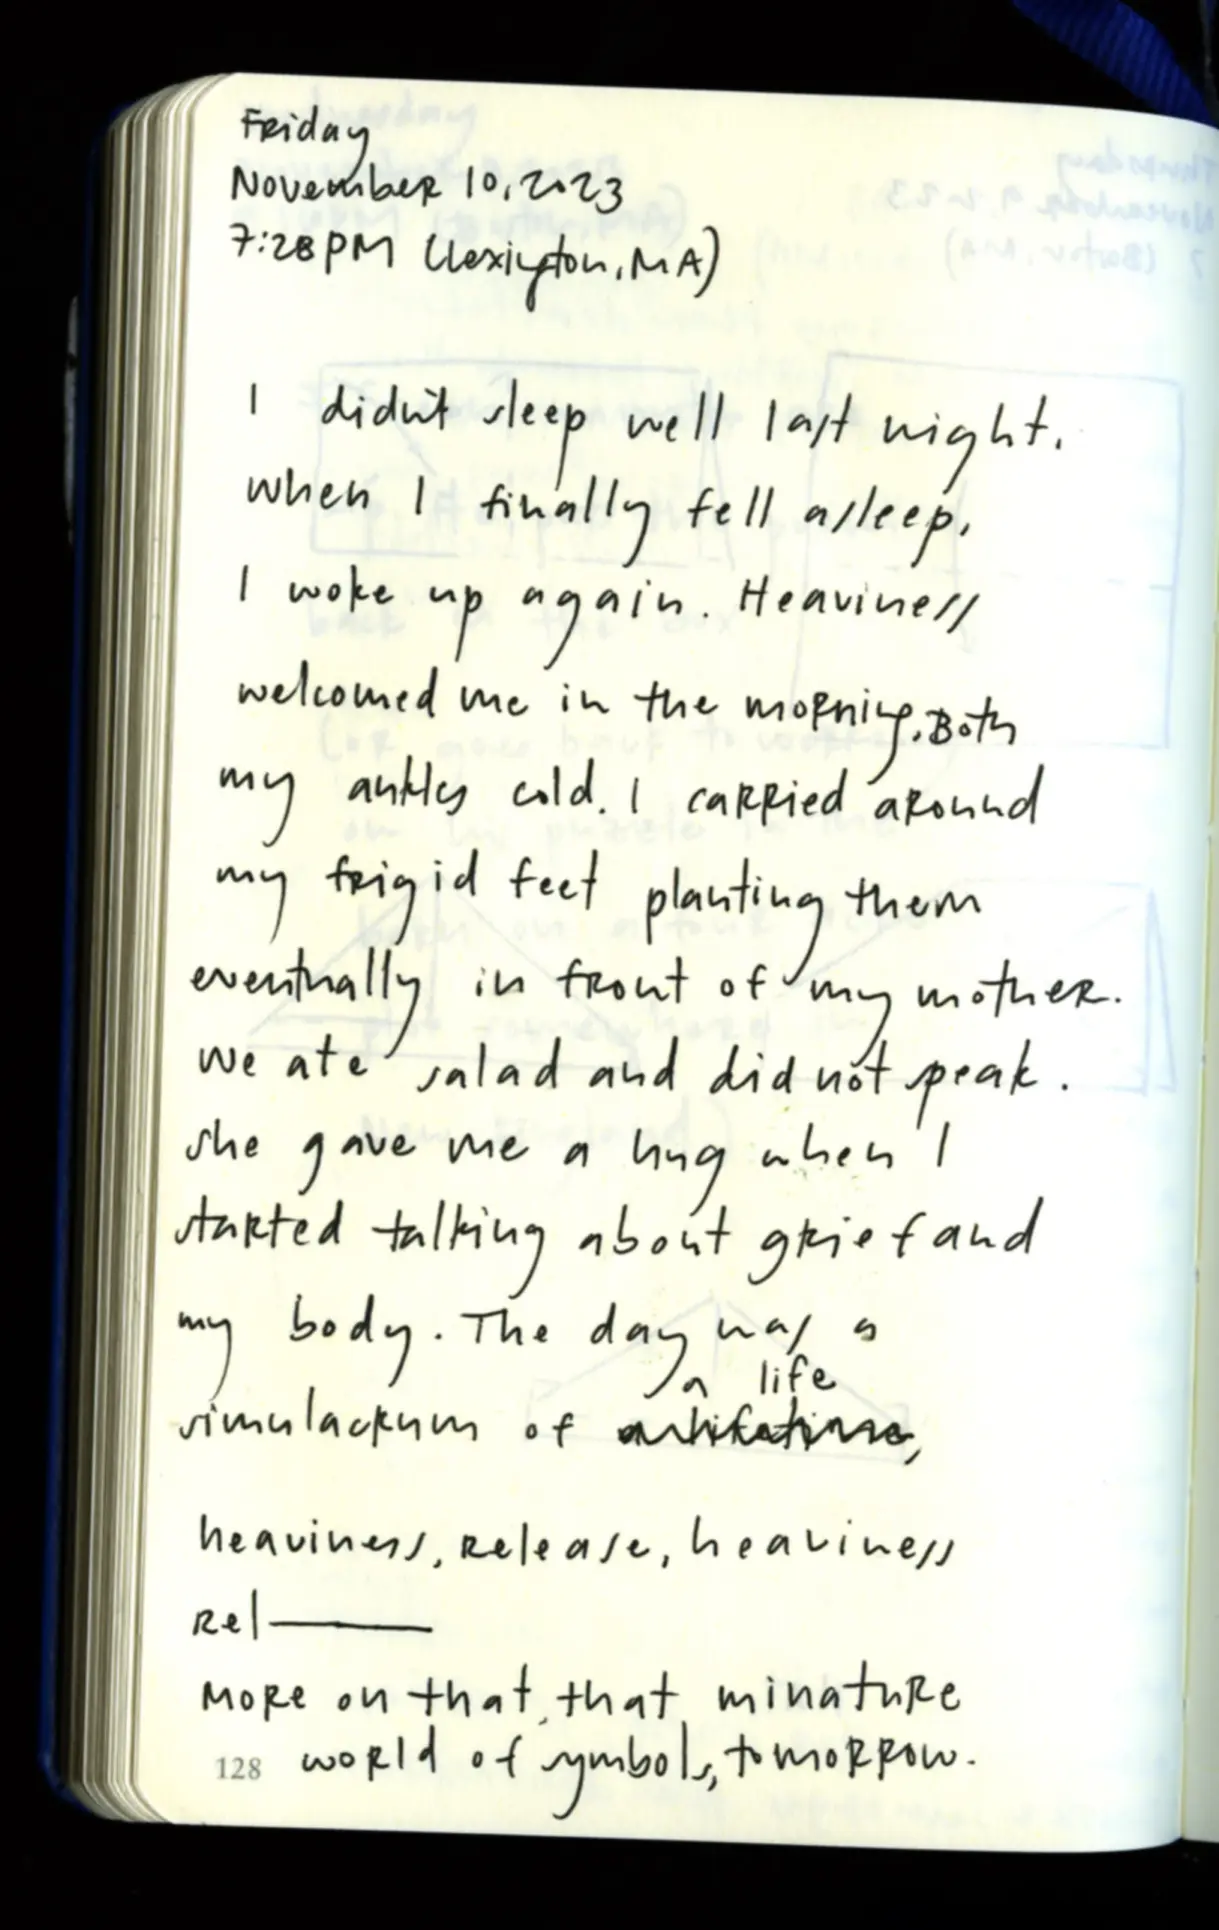 Friday
November 10, 2023
7:28 PM (Lexington, MA)
I didn't sleep well last night.
When I finally fell asleep,
I woke up again. Heaviness
welcomed me in the morning. Both
my ankles cold. I carried around
my frigid feet planting them
eventually in front of my mother.
We ate salad and did not speak.
She gave me a hug when I
started talking about grief and
my body. The day was a
a life
simulacrum of
heaviness, release, heaviness
rel—
More on that, that minature
world of symbols, tomorrow.
128